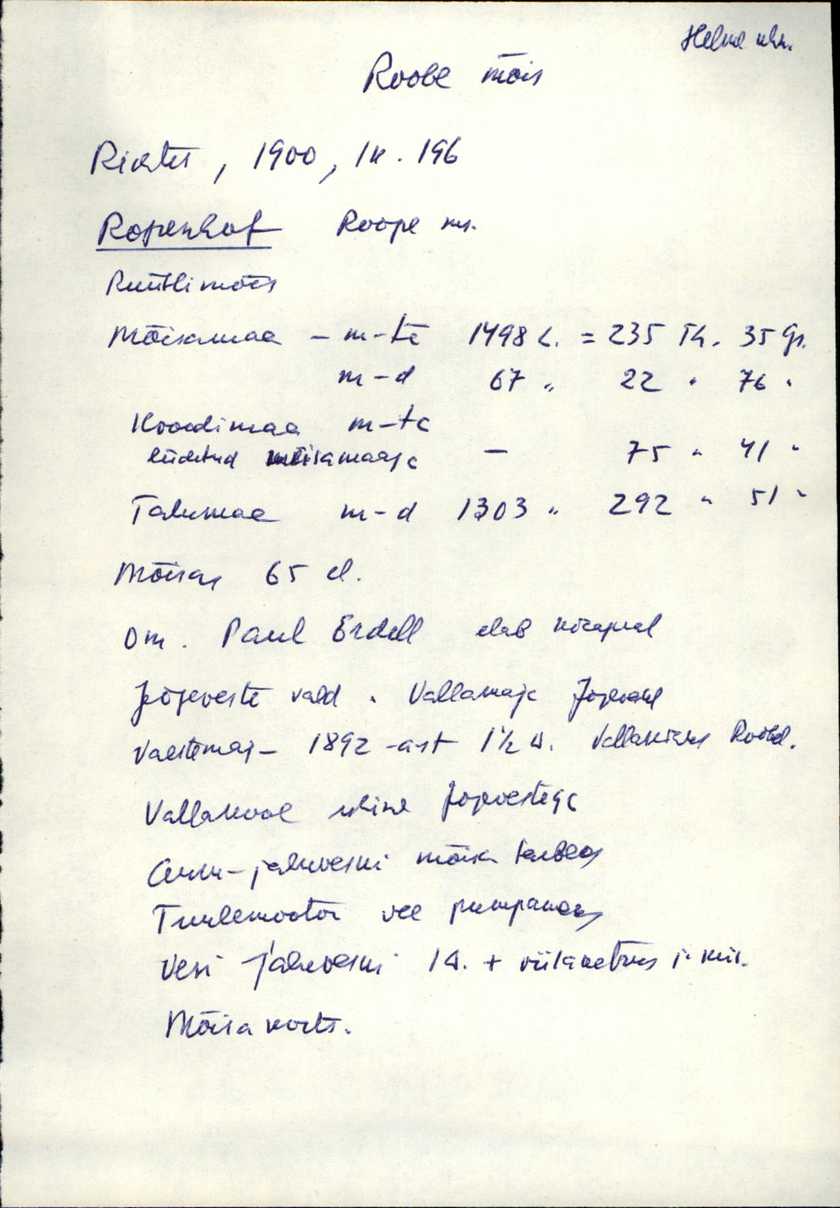 Helme khk.
Roobe mõis
Richter, 1900, lk. 196
Ropenhof Roope ms.
Rüütlimõis
Mõisamaa - m-ta 1498 L. = 235 Th. 35 Gr.
m-d 67 " 22 " 76 "
Koodimaa m-ta
liidetud mõisamaaga - 75 " 41 "
Talumaa m-d 1303 " 292 " 51 "
Mõisas 65 el.
Om. Paul Erdell elab kõrapeal
Jõgeveste vald. Vallamaja Jõgevestel
Vaestemaj- 1892-ast 1½ v. Vallakirjas Roobel.
Vallakool ühine Jõgevestega
Auru-jahuveski mõisa tarbeks
Tuulemootor vee pumpamiseks
Vesi jahuveski 1 v. +
Mõisa kõrts.